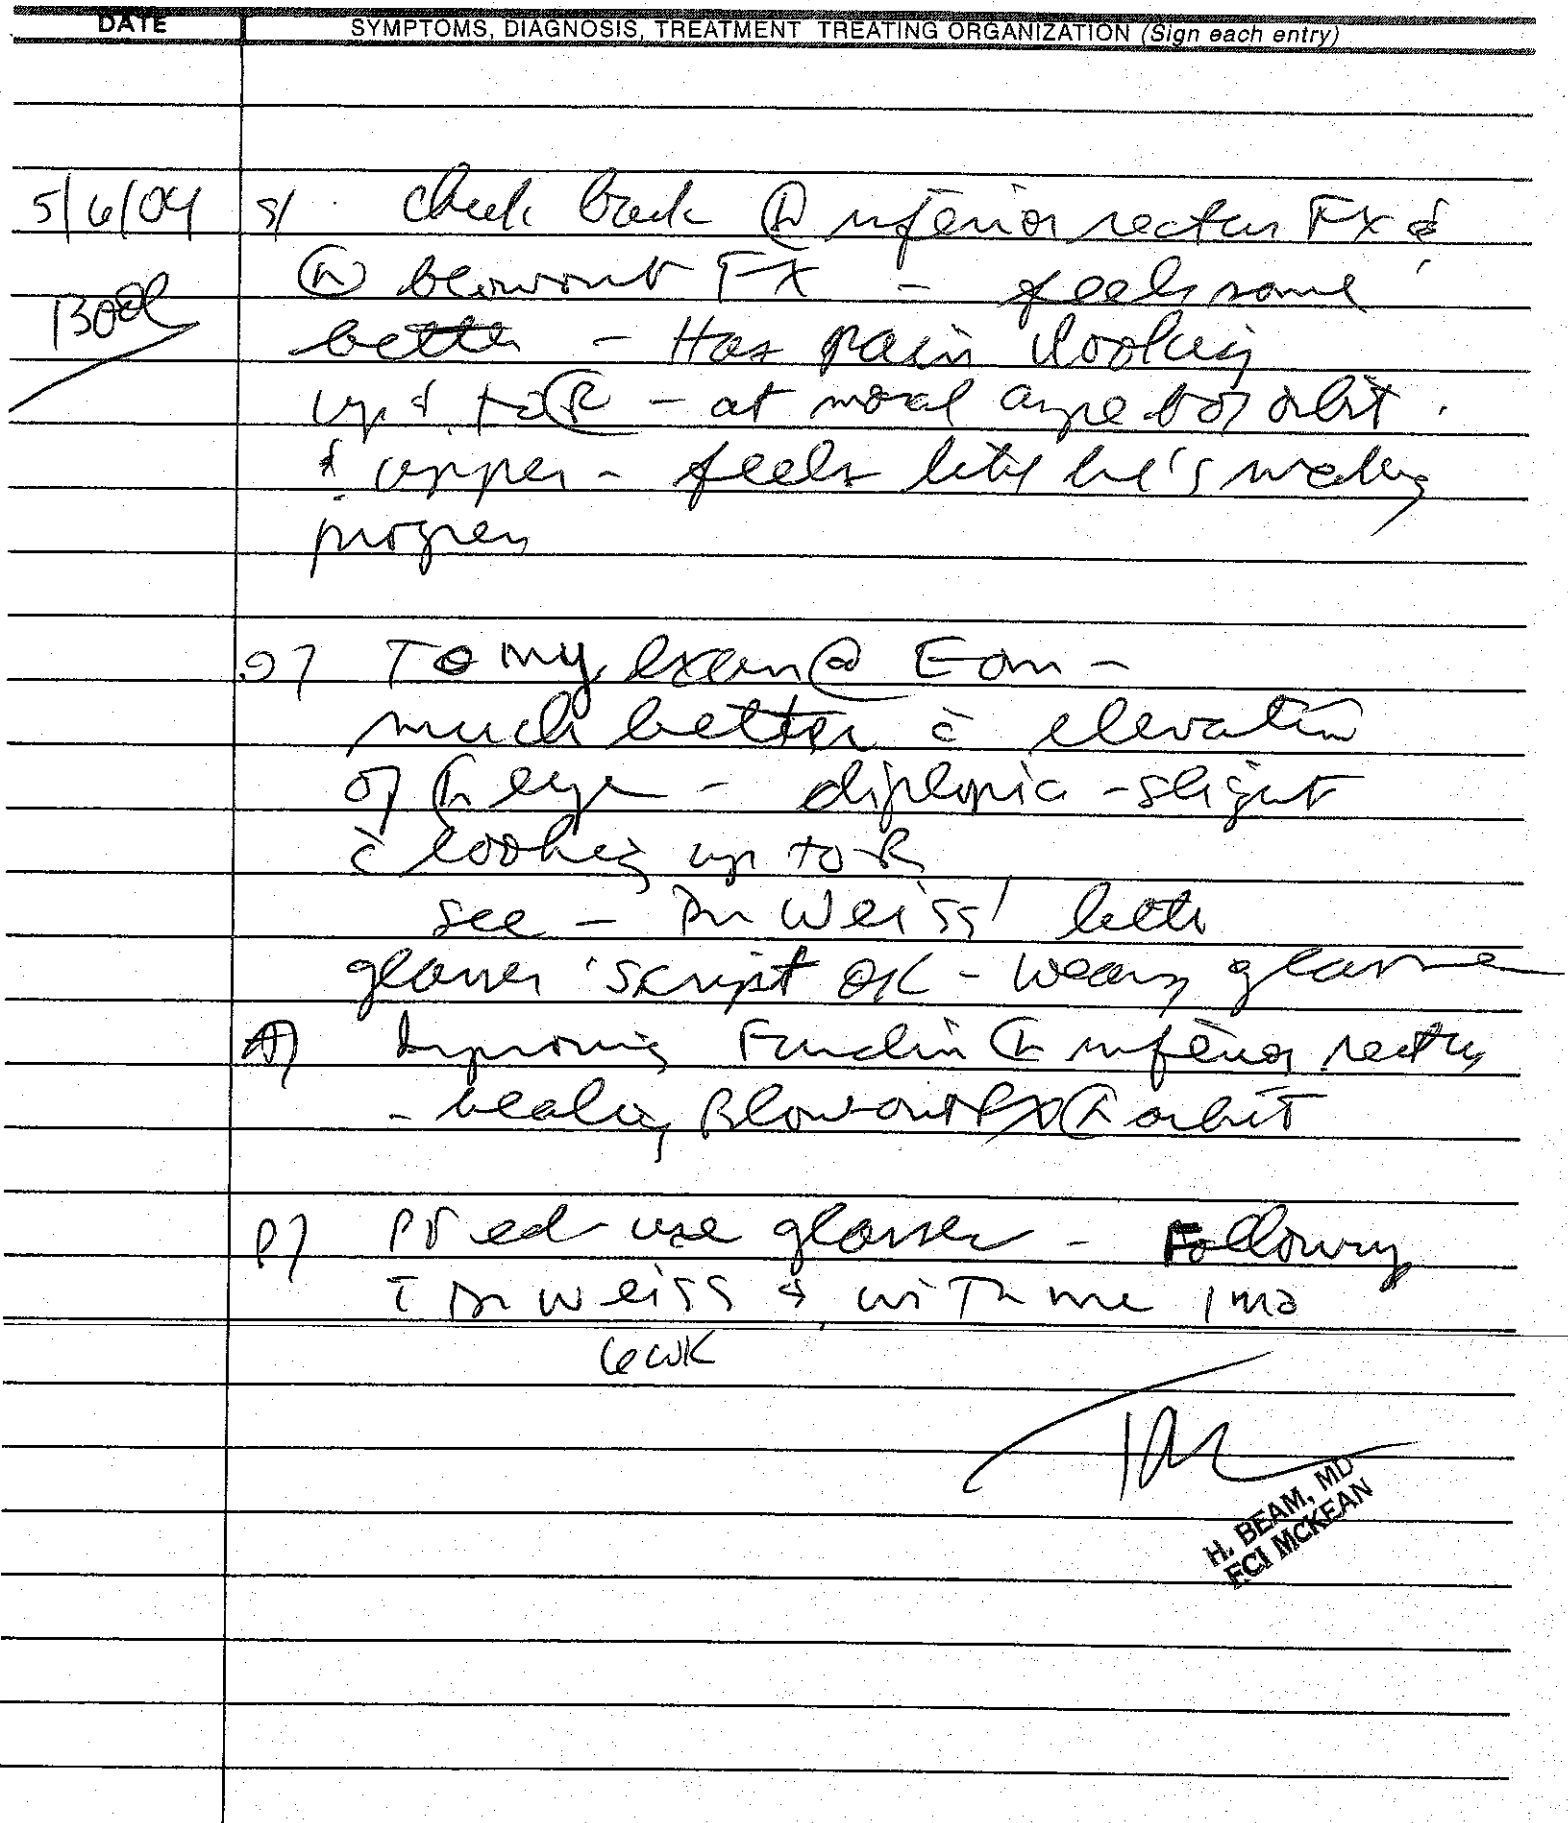 DATE SYMPTOMS, DIAGNOSIS, TREATMENT TREATING ORGANIZATION (Sign each entry)
5/6/04 s/ check back Ⓡ inferior rectus Fx &
1300 Ⓡ blowout Fx - feels some
better - Has pain looking
up & to Ⓡ - at of orbit
& upper - feels like he's making
progress
O) To my exam EOM -
much better c̄ elevation
of Ⓡ eye - diplopia - slight
c̄ looking up to R
see - Dr Weiss' letter
glasses 'script OK - wearing glasses
A) Improving Function Ⓡ inferior rectus
- healing Blow-out Fx Ⓡ orbit
P) Pt ed use glasses - Following
c̄ Dr Weiss & with me 1 mo
6 wk
H. BEAM, MD
FCI MCKEAN